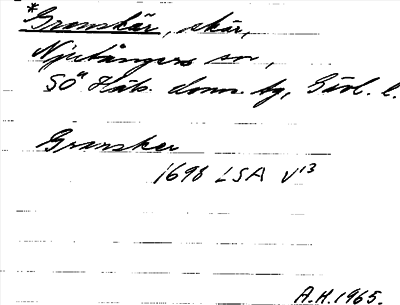 *Granskär, skär,
Njutångers sn,
SÖ Häls. doms. bg, Gävl. l.
Gransker
1698 LSA V13
A.H. 1965.